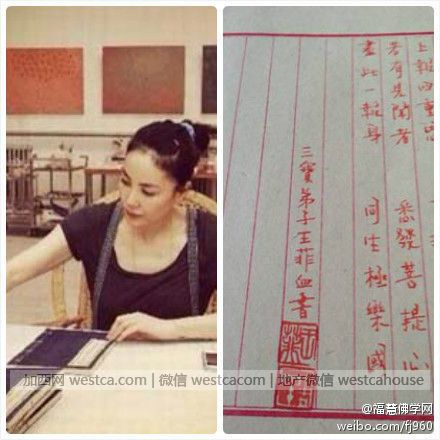 上報四重恩
若有見聞者 悉發菩提心
盡此一報身 同生極樂國
三寶弟子王菲血書
加西网 westca.com | 微信 westcacom | 地产微信 westcahouse
@福慧佛学网
weibo.com/fj960